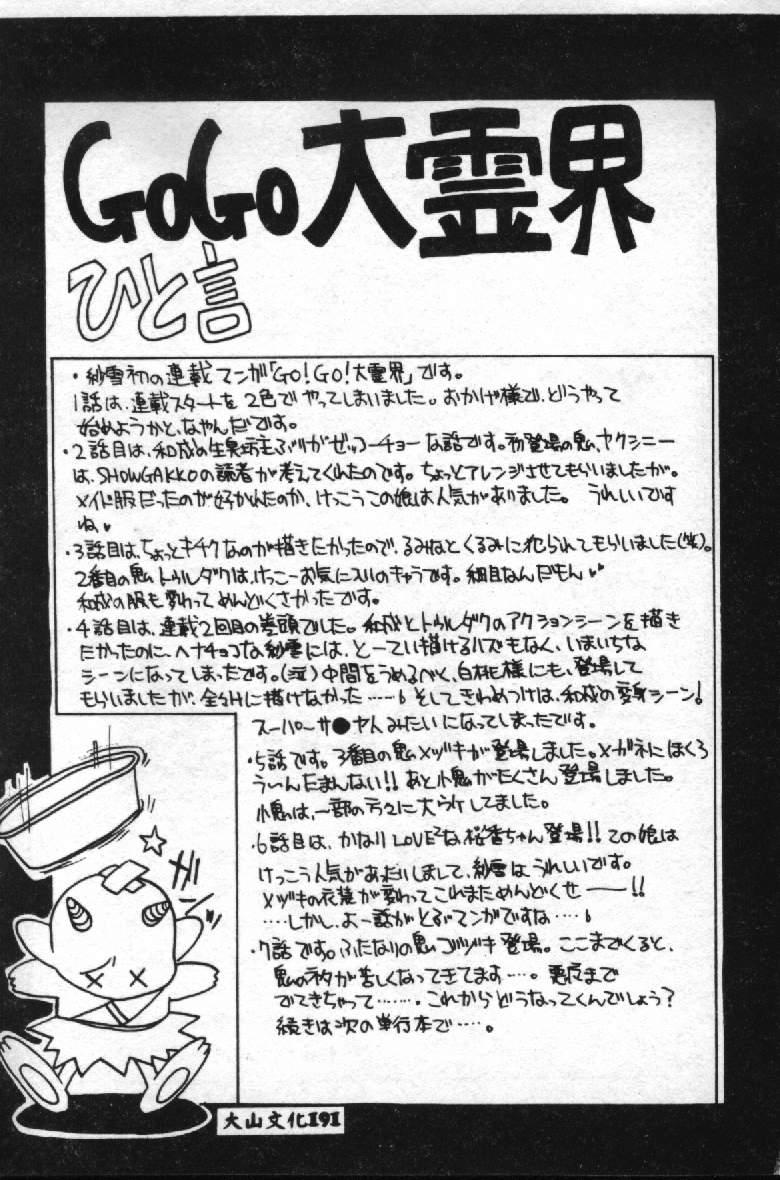 GoGo大霊界
ひと言
・紗雪初の連載マンガ「GO!GO!大霊界」です。
1話は、連載スタートを2色でやってしまいました。おかげ様で、どうやって
始めようかと、なやんだです。
・2話目は、和成の生臭坊主ぶりがゼッコーチョーな話です。初登場の鬼、ヤクシニー
は、SHOWGAKKOの読者が考えてくれたのです。ちょっとアレンジさせてもらいましたが。
メイド服だったのが好かれたのか、けっこうこの娘は人気がありました。うれしいです
ね♥
・3話目は、ちょっとキチクなのが描きたかったので、るみねとくるみに犯られてもらいました(笑)。
2番目の鬼トゥルダクは、けっこーお気に入りのキャラです。細目なんだもん♥
和成の服も変わってめんどくさかったです。
・4話目は、連載2回目の巻頭でした。和成とトゥルダクのアクションシーンを描き
たかったのに、ヘナチョコな紗雪には、とーてい描けるハズもなく、いまいちな
シーンになってしまったです。(泣)中間をうめるべく、白桃様にも、登場して
もらいましたが、全然Hに描けなかった……。そしてきわめつけは、和成の変身シーン!
スーパーサ●ヤ人みたいになってしまったです。
・5話です。3番目の鬼メヅキが登場しました。メガネにほくろ
うぃんたまんない!!あと小鬼がたくさん登場しました。
小鬼は、一部の方々に大ウケしてました。
・6話目は、かなりLOVE²な、桜香ちゃん登場!!この娘は
けっこう人気があたいしまして、紗雪はうれしいです。
メヅキの衣装が変わってこれまためんどくせ——!!
……しかし、よー話がとぶマンガですな……。
・7話です。ふたなりの鬼ゴヅキ登場。ここまでくると、
鬼のネタが苦しくなってきてます…。悪役まで
でてきちゃって……。これからどうなってくんでしょう?
続きは次の単行本で…。
キュンッ
大山文化191